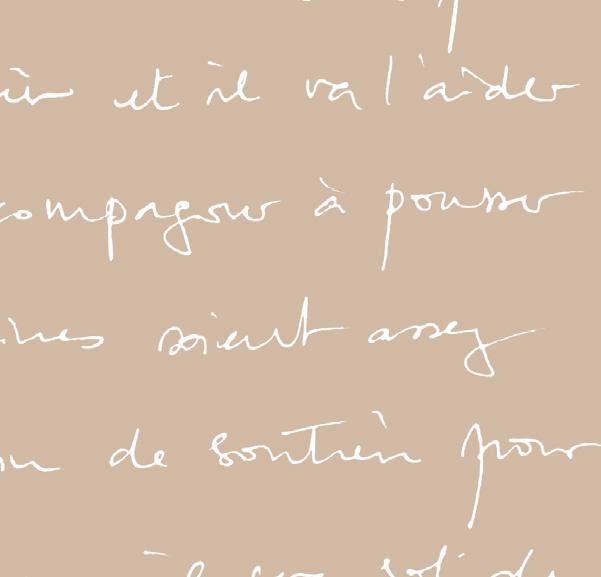 et il va l'aider
compagner à pousser
soient assez
de soutien pour